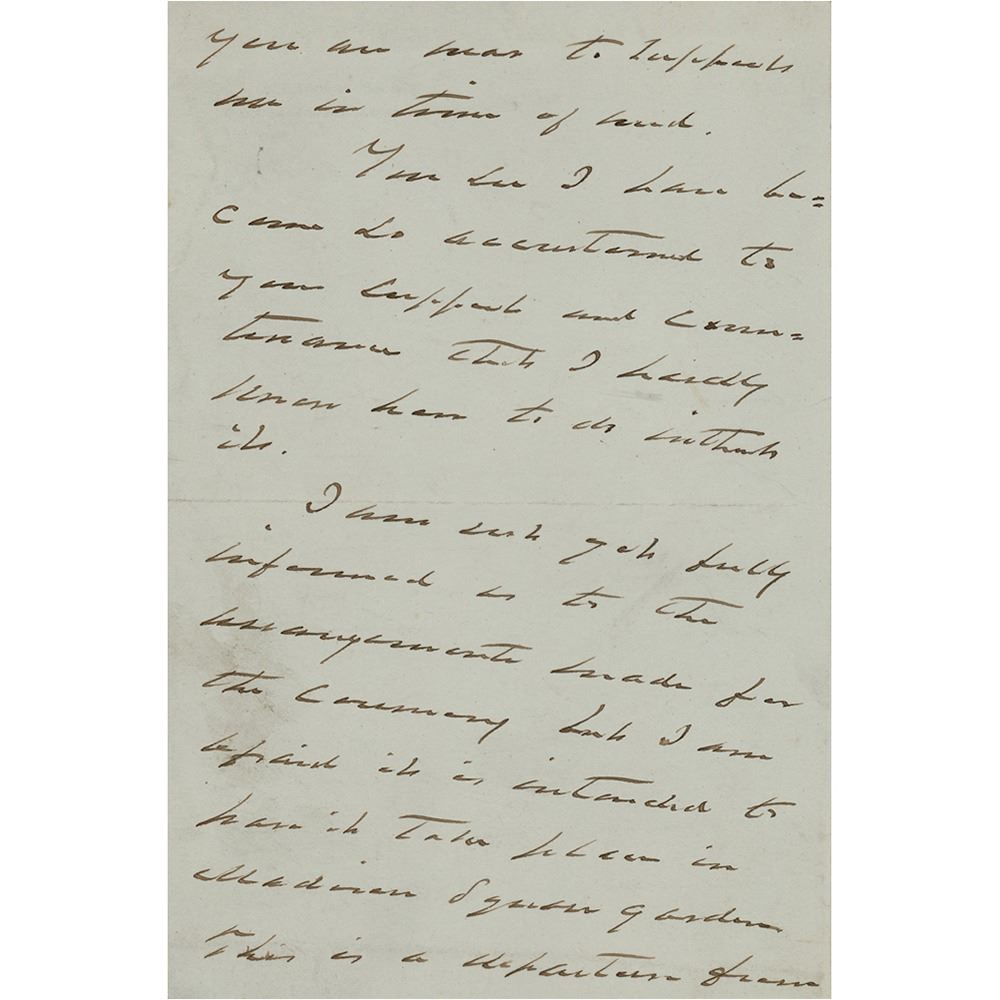 you are near to support
me in time of need.
You see I have be=
come so accustomed to
your support and coun=
tenance that I hardly
know how to do without
it.
I am not yet fully
informed as to the
arrangements made for
the ceremony but I am
afraid it is intended to
have it take place in
Madison Square Garden
This is a departure from